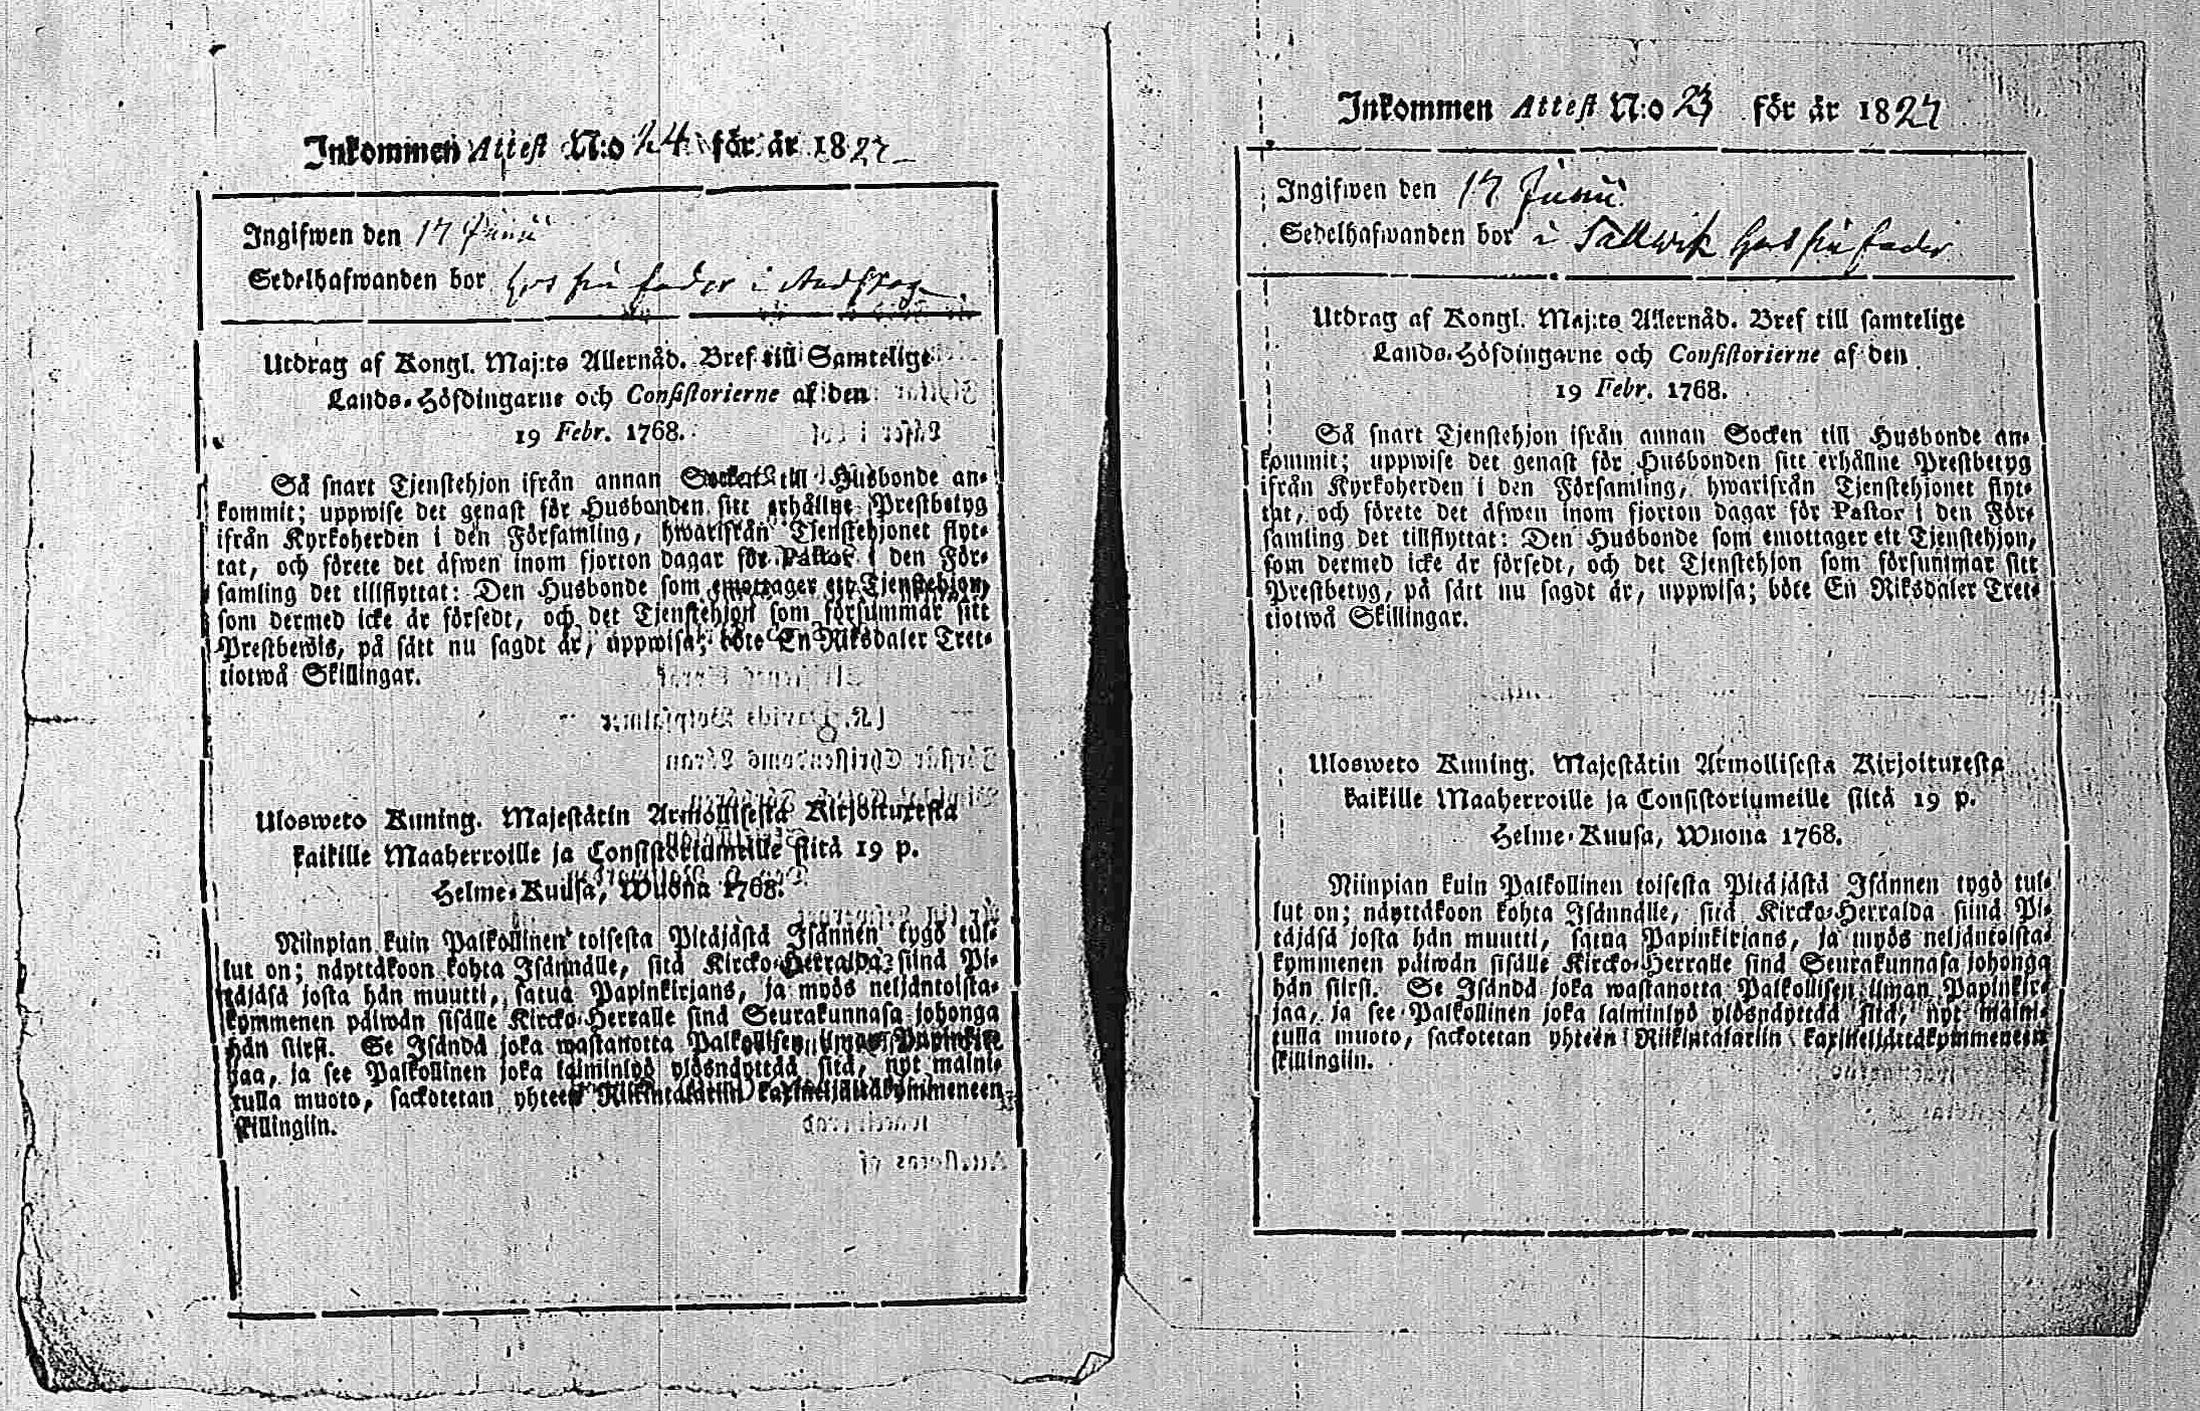 Inkommen Attest N:o 24 för år 1827
Ingifwen den 17 Junii
Sedelhafwanden bor hos sin fader i
Utdrag af Kongl. Maj:ts Allernåd. Bref till Samtelige
Lands-Höfdingarne och Consistorierne af den
19 Febr. 1768.
Så snart Tjenstehjon ifrån annan Socken till Husbonde an-
kommit; uppwise det genast för Husbonden sitt erhållne Prestbetyg
ifrån Kyrkoherden i den Församling, hwarifrån Tjenstehjonet flyt-
tat, och förete det äfwen inom fjorton dagar för Pastor i den För-
samling det tillflyttat: Den Husbonde som emottager ett Tjenstehjon,
som dermed icke är försedt, och det Tjenstehjon som försummar sitt
Prestbewis, på sätt nu sagdt är, uppwisa; böte En Riksdaler Tret-
tiotwå Skillingar.
Ulosweto Kuning. Majestätin Armollisesta Kirjoituxesta
kaikille Maaherroille ja Consistoriumeille siitä 19 p.
Helme-Kuusa, Wuona 1768.
Niinpian kuin Palkollinen toisesta Pitäjästä Isännen tygö tul-
lut on; näyttäkoon kohta Isännälle, sitä Kircko-Herralda siinä Pi-
täjäsä josta hän muutti, satua Papinkirjans, ja myös neljäntoista-
kymmenen päiwän sisälle Kircko-Herralle sinä Seurakunnasa johonga
hän siirsi. Se Isändä joka wastanotta Palkollisen ilman Papinkir-
jaa, ja see Palkollinen joka laiminlyö ylösnäyttää sitä, nyt maini-
tulla muoto, sackotetan yhteen Riikintalariin kaxineljättäkymmeneen
skillingiin.
Inkommen Attest N:o 23 för år 1827
Ingifwen den 17 Junii
Sedelhafwanden bor i Tallwik hos sin fader
Utdrag af Kongl. Maj:ts Allernåd. Bref till samtelige
Lands-Höfdingarne och Consistorierne af den
19 Febr. 1768.
Så snart Tjenstehjon ifrån annan Socken till Husbonde an-
kommit; uppwise det genast för Husbonden sitt erhållne Prestbetyg
ifrån Kyrkoherden i den Församling, hwarifrån Tjenstehjonet flyt-
tat, och förete det äfwen inom fjorton dagar för Pastor i den För-
samling det tillflyttat: Den Husbonde som emottager ett Tjenstehjon,
som dermed icke är försedt, och det Tjenstehjon som försummar sitt
Prestbetyg, på sätt nu sagdt är, uppwisa; böte En Riksdaler Tret-
tiotwå Skillingar.
Ulosweto Kuning. Majestätin Armollisesta Kirjoituxesta
kaikille Maaherroille ja Consistoriumeille siitä 19 p.
Helme-Kuusa, Wuona 1768.
Niinpian kuin Palkollinen toisesta Pitäjästä Isännen tygö tul-
lut on; näyttäkoon kohta Isännälle, sitä Kircko-Herralda siinä Pi-
täjäsä josta hän muutti, satua Papinkirjans, ja myös neljäntoista-
kymmenen päiwän sisälle Kircko-Herralle sinä Seurakunnasa johonga
hän siirsi. Se Isändä joka wastanotta Palkollisen ilman Papinkir-
jaa, ja see Palkollinen joka laiminlyö ylösnäyttää sitä, nyt maini-
tulla muoto, sackotetan yhteen Riikintalariin kaxineljättäkymmeneen
skillingiin.